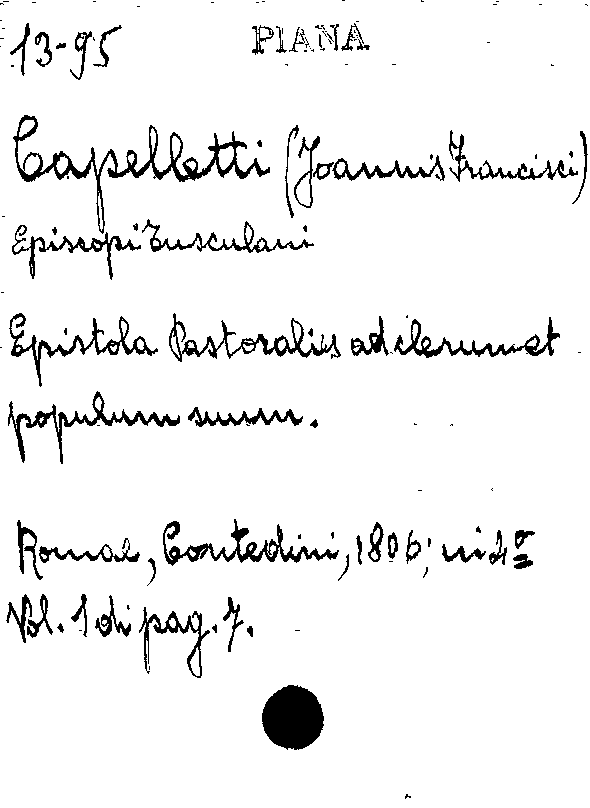 13-95 PIANA
Capelletti (Joannis Francisci)
Episcopi Tusculani
Epistola Pastoralis ad clerum et
populum suum.
Romae, Contedini, 1806; in 4º
Vol. 1 di pag. 7.